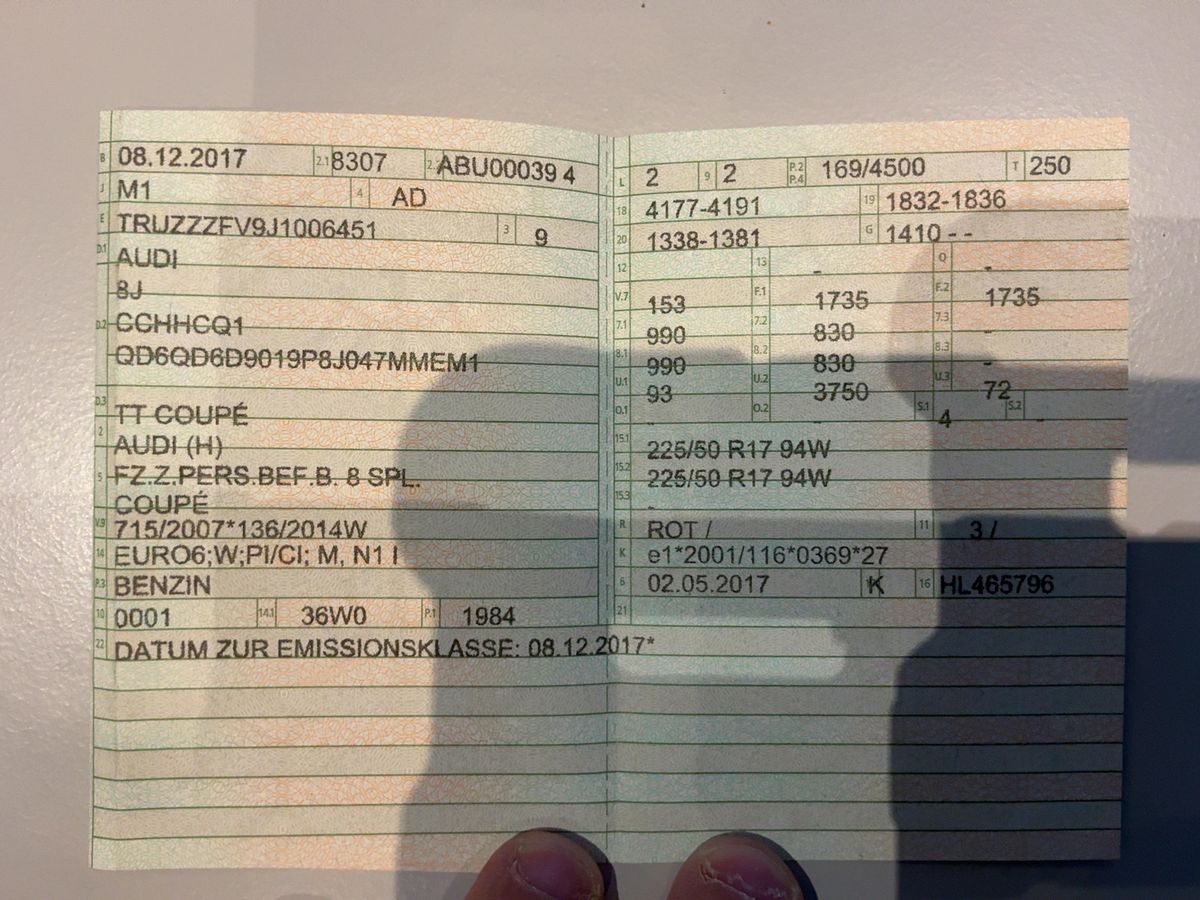 B 08.12.2017 2.1 8307 2.2 ABU00039 4
J M1 4 AD
E TRUZZZFV9J1006451 3 9
D.1 AUDI
8J
D.2 CCHHCQ1
QD6QD6D9019P8J047MMEM1
D.3 TT COUPÉ
2 AUDI (H)
5 FZ.Z.PERS.BEF.B. 8 SPL.
COUPÉ
V.9 715/2007*136/2014W
14 EURO6;W;PI/CI; M, N1 I
P.3 BENZIN
10 0001 14.1 36W0 P.1 1984
22 DATUM ZUR EMISSIONSKLASSE: 08.12.2017*
L 2 9 2 P.2 P.4 169/4500 T 250
18 4177-4191 19 1832-1836
20 1338-1381 G 1410 - -
12 13 - Q -
V.7 153 F.1 1735 F.2 1735
7.1 990 7.2 830 7.3 -
8.1 990 8.2 830 8.3 -
U.1 93 U.2 3750 U.3 72
O.1 - O.2 - S.1 4 S.2 -
15.1 225/50 R17 94W
15.2 225/50 R17 94W
15.3 -
R ROT / 11 3 /
K e1*2001/116*0369*27
6 02.05.2017 K 16 HL465796
21